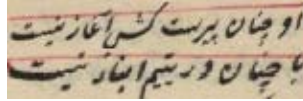 او چنان پیرست کش آغاز نیست
با چنان در یتیم انباز نیست